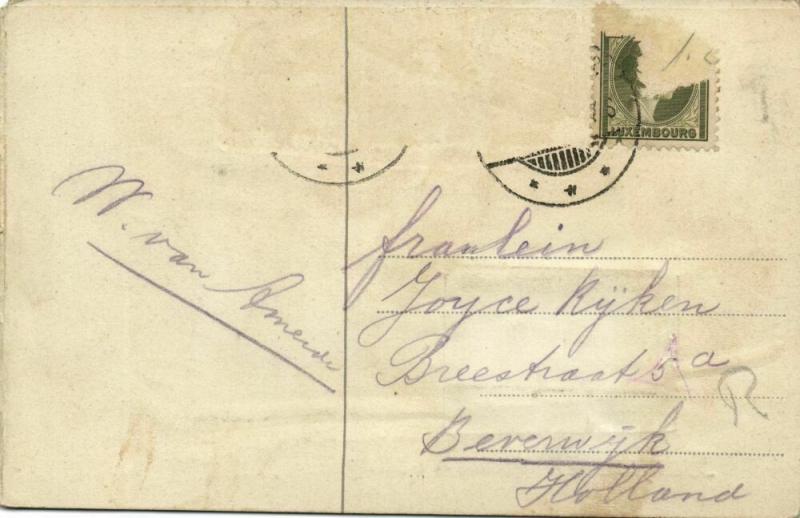 LUXEMBOURG
W. van Ameide
fraulein
Joyce Kyken
Breestraat 5a
Beverwijk
Holland
R